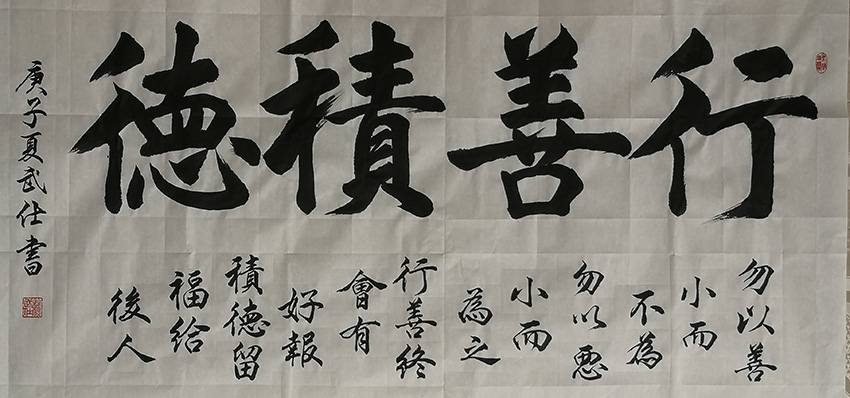 行善積德
勿以善
小而
不為
勿以恶
小而
為之
行善终
會有
好報
積德留
福给
後人
庚子夏武仕書